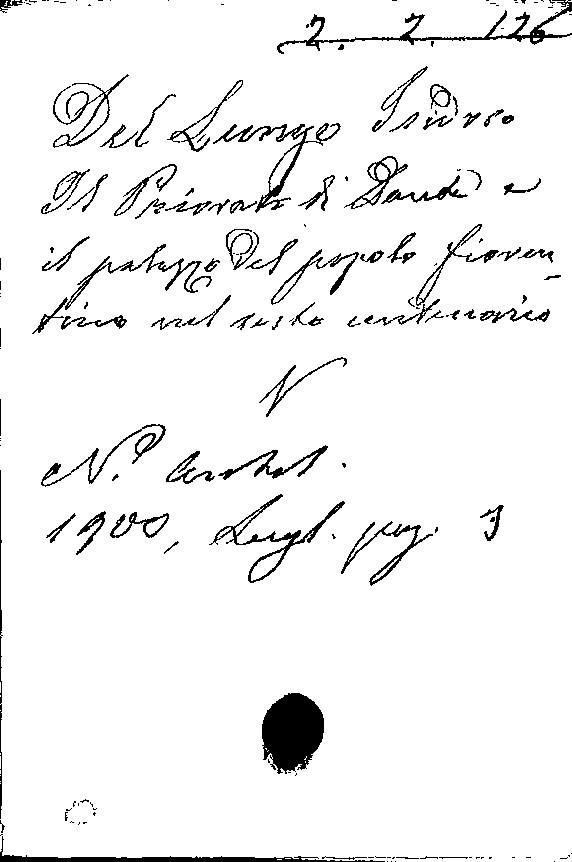 2. 2. 126
Del Lungo Isidoro
Il Priorato di Dante e
il palazzo del popolo fioren-
tino nel sesto centenario
N
N.ª Antol.
1900, Lugl. pag. 3